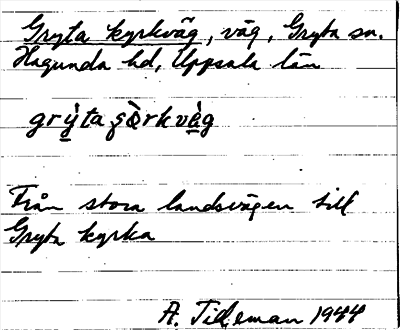 Gryta kyrkväg, väg, Gryta sn.
Hagunda hd, Uppsala län
grỳ̲ta şö̀rkvὲ̲g
Från stora landsvägen till
Gryta kyrka
A. Tideman 1944